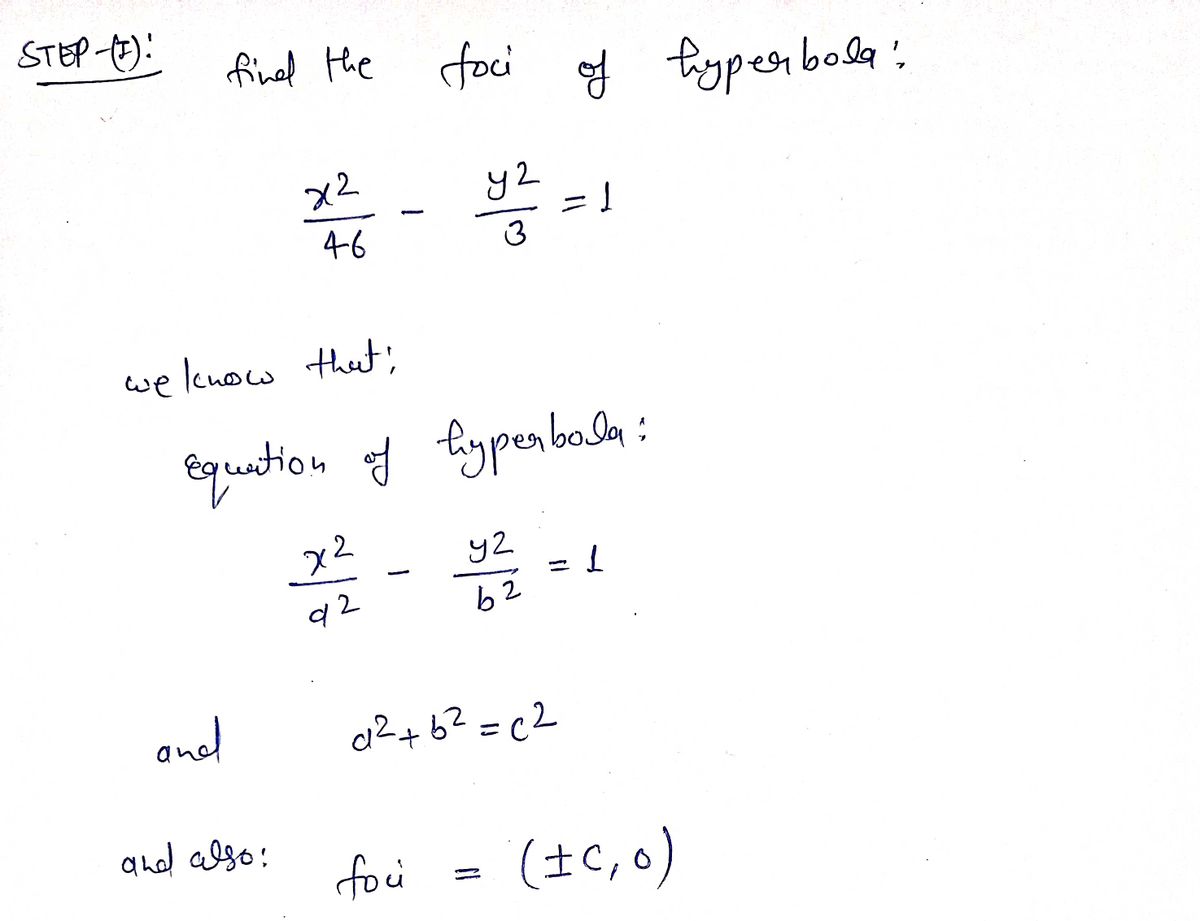 STEP-(I): find the foci of hyperbola:
x2/46 - y2/3 = 1
we know that;
Equation of hyperbola:
x2/a2 - y2/b2 = 1
and a2 + b2 = c2
and also: foci = (±c, 0)